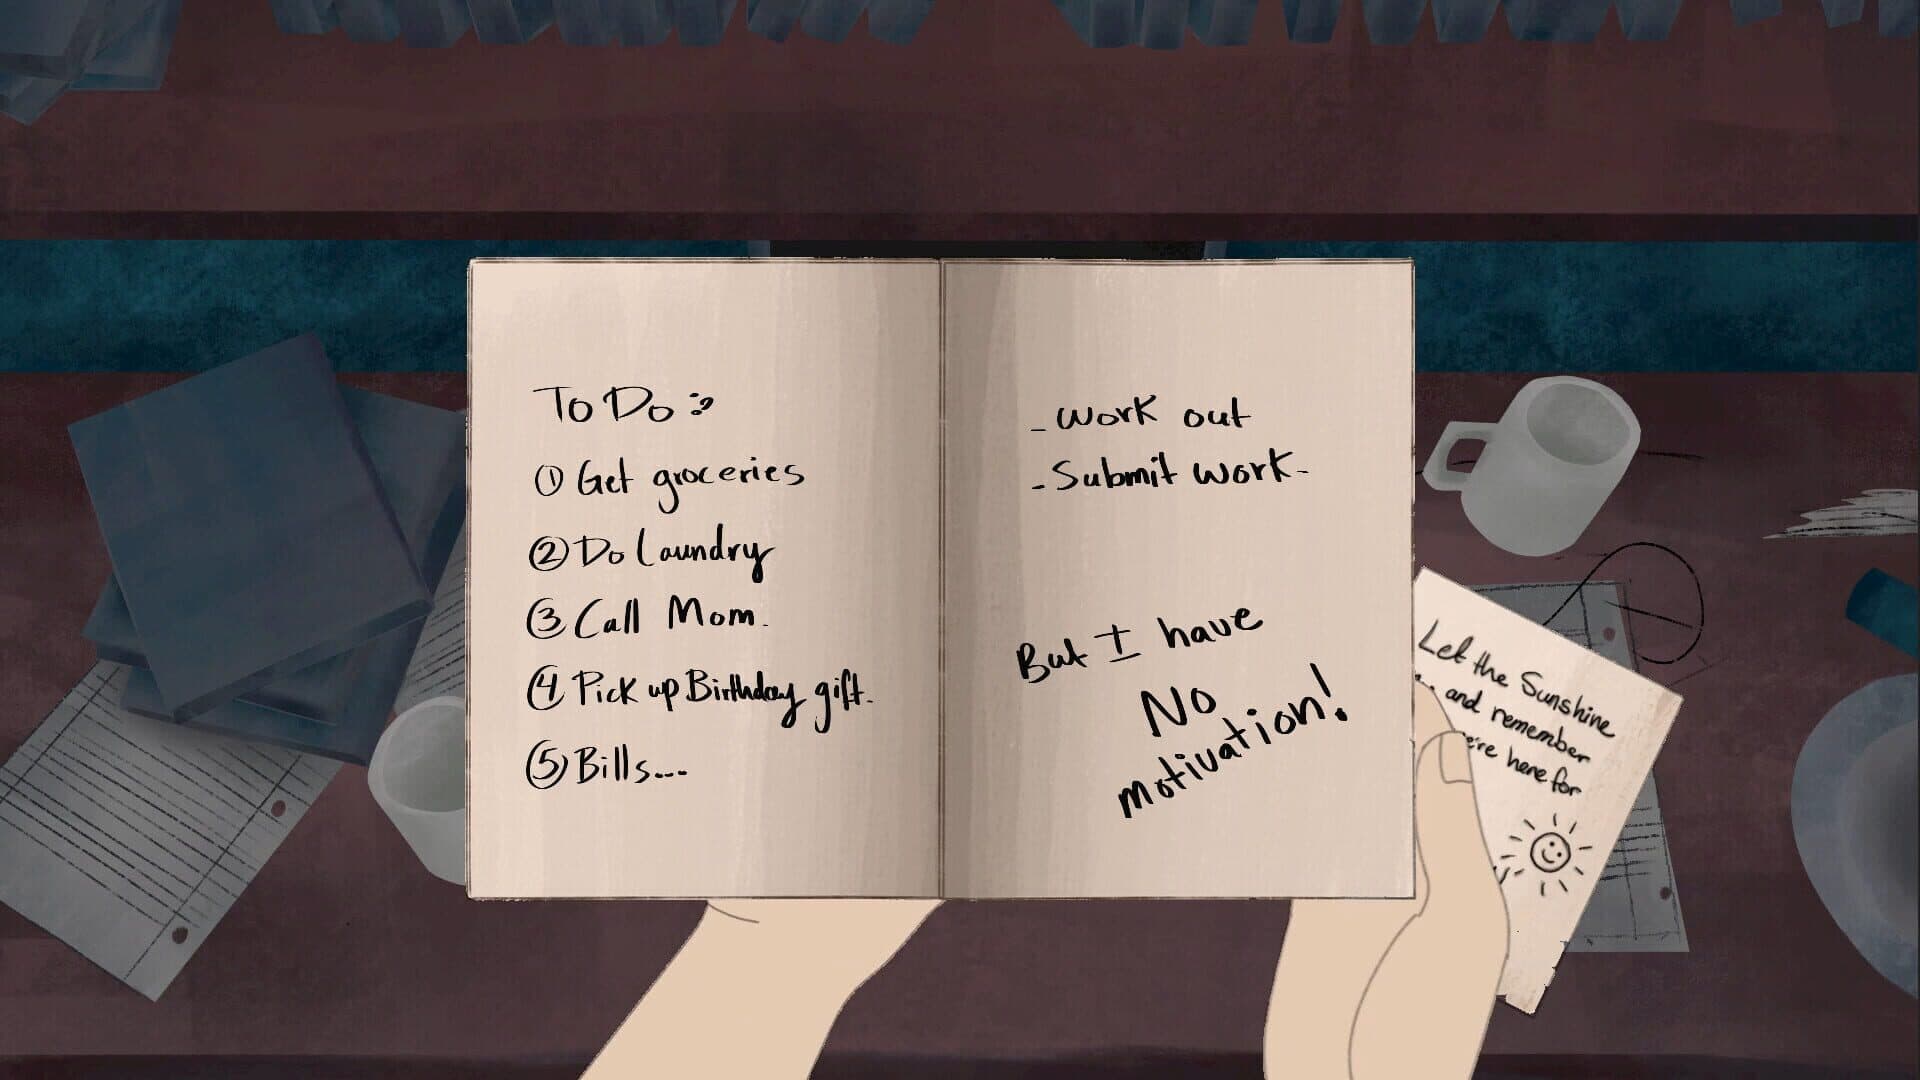 To Do :
① Get groceries
② Do laundry
③ Call Mom.
④ Pick up Birthday gift.
⑤ Bills...
- work out
- Submit work-
But I have
NO
motivation!
Let the Sunshine
and remember
here for